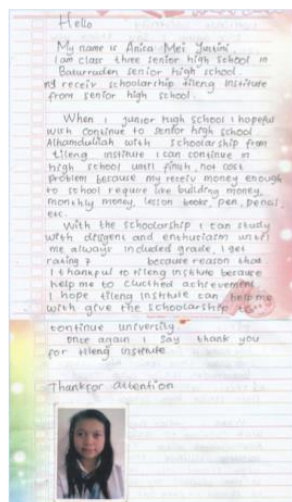 Hello
My name is Anica Mei Yustini.
I am class three senior high school in
Baturraden senior high school.
receiv schoolarship tileng institute
from senior high school.
When I junior high school I hopeful
with continue to senior high school
Alhamdulilah with schoolarship from
tileng institute I can continue in
high school until finish, not cost
problem because my receiv money enough
to school require like building money,
monthly money, lesson book, pen, pencil
etc.
With the schoolarship I can study
with diligent and enthusiasm until
me always included grade, I get
rating 7 because reason that
I thankful to tileng institute because
help me to cluched achievement.
I hope tileng institute can help me
with give the schoolarship to
continue university
once again I say thank you
for tileng institute
Thankfor attention